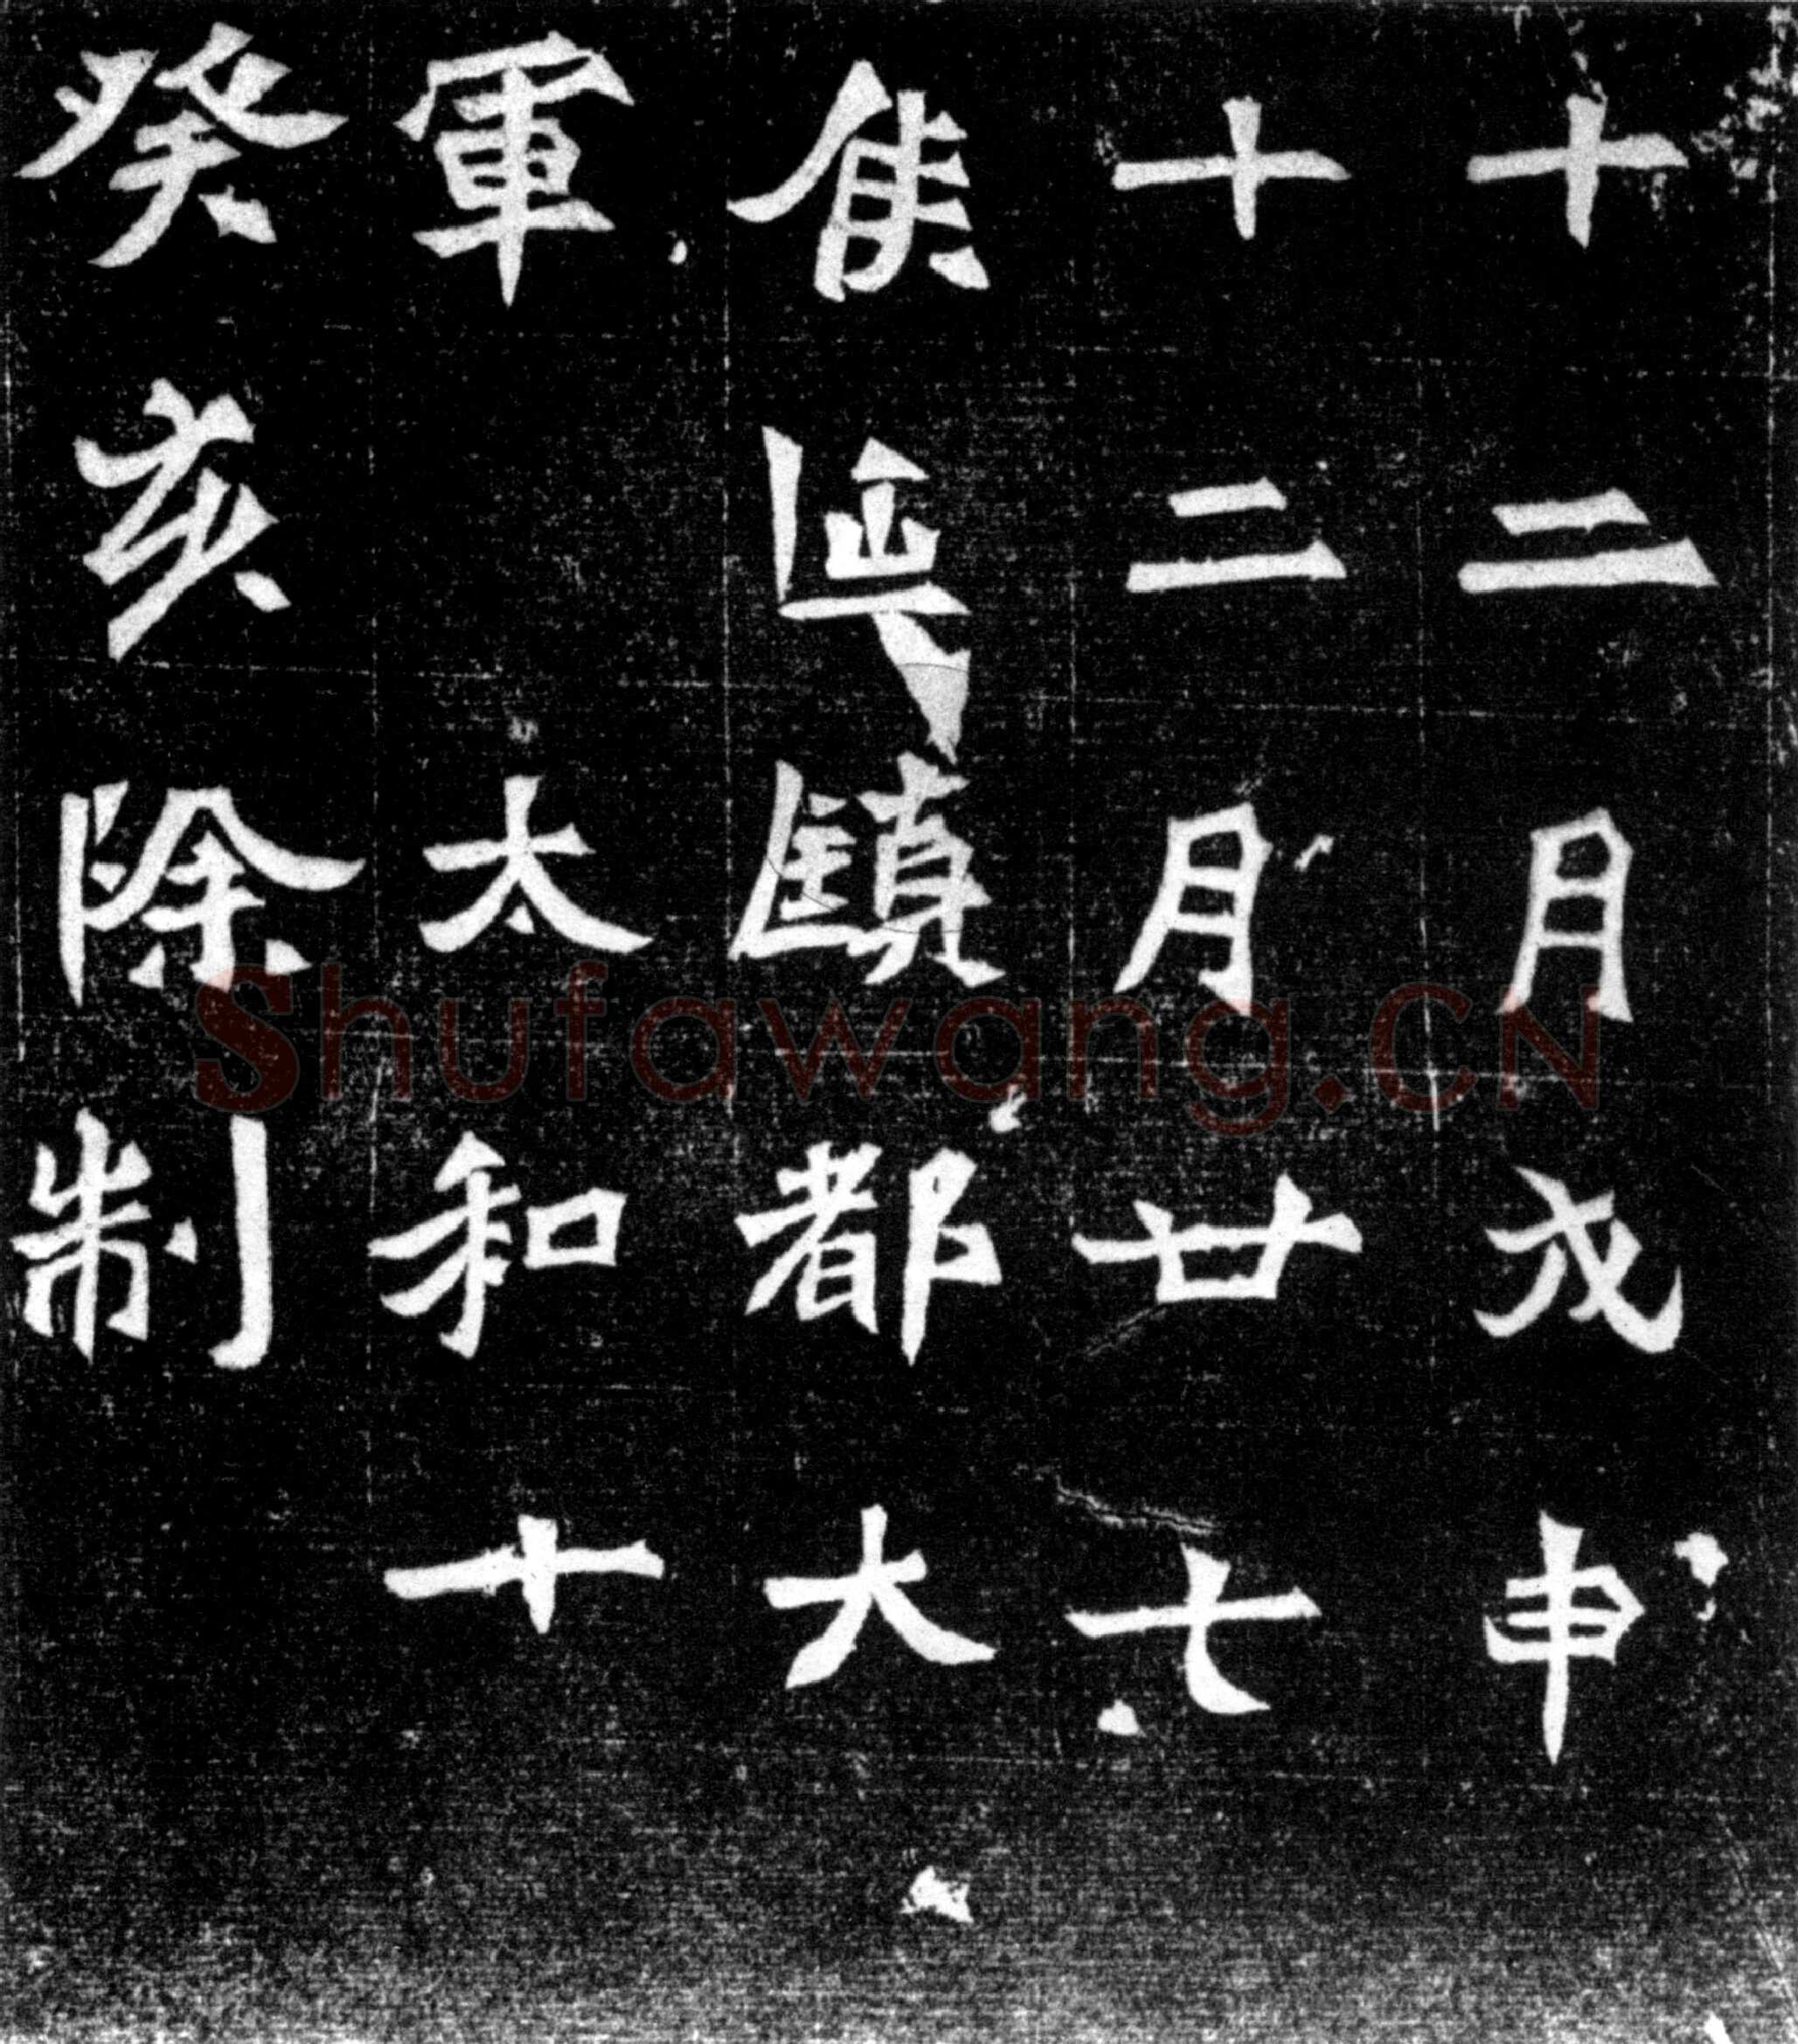 十二月戊申
十二月廿七
侯延鎮都大
軍 太和十
癸亥除制
Shufawang.CN